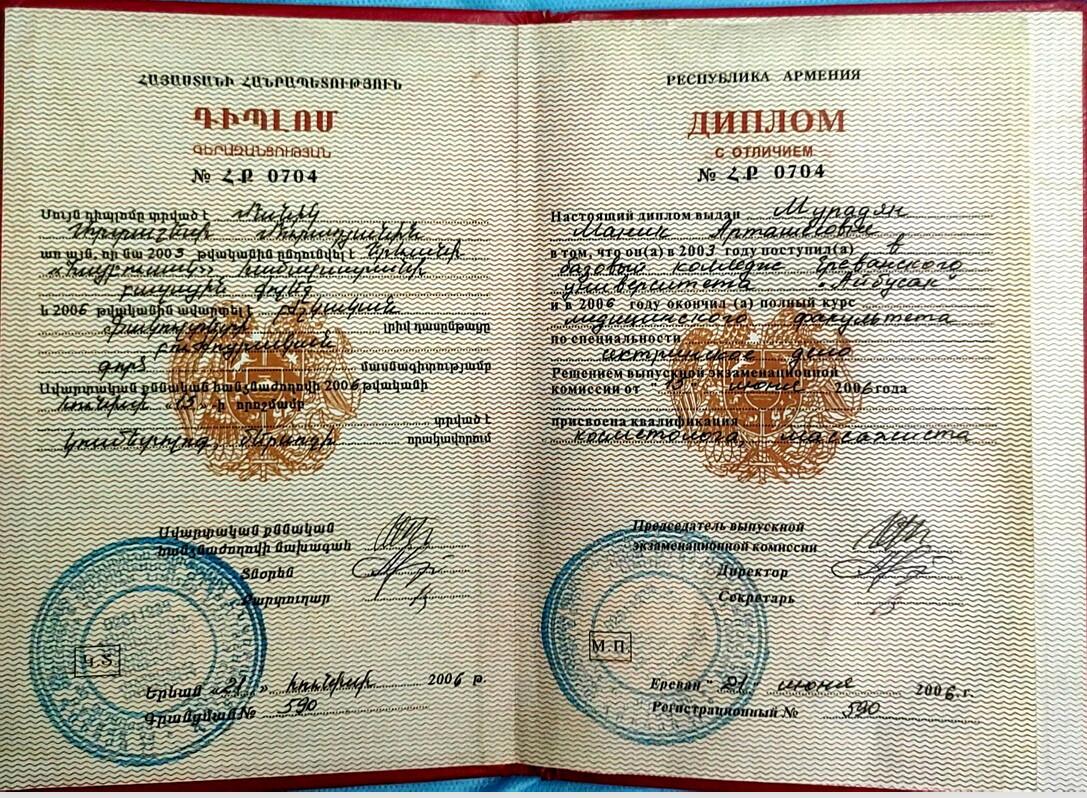 ՀԱՅԱՍՏԱՆԻ ՀԱՆՐԱՊԵՏՈՒԹՅՈՒՆ
ԴԻՊԼՈՄ
ԳԵՐԱԶԱՆՑՈՒԹՅԱՆ
№ ՀՔ 0704
Սույն դիպլոմը տրված է Մանիկ
Արտաշեսի Մուրադյանին
առ այն, որ նա 2003 թվականին ընդունվել է Երևանի
«Հայբուսակ» համալսարանի
բազային քոլեջ
և 2006 թվականին ավարտել է բժշկական
ֆակուլտետի լրիվ դասընթացը
բուժքույրական
գործ մասնագիտությամբ
Ավարտական քննական հանձնաժողովի 2006 թվականի
հունիսի «13» -ի որոշմամբ
տրված է
կոսմետոլոգ, մերսողի որակավորում
Ավարտական քննական
հանձնաժողովի նախագահ
Տնօրեն
Քարտուղար
Կ.Տ.
Երևան «21» հունիսի 2006 թ.
Գրանցման № 590
РЕСПУБЛИКА АРМЕНИЯ
ДИПЛОМ
С ОТЛИЧИЕМ
№ ՀՔ 0704
Настоящий диплом выдан Мурадян
Маник Арташесовне
в том, что он(а) в 2003 году поступил(а) в
базовый колледж Ереванского
университета "Айбусак"
и в 2006 году окончил (а) полный курс
медицинского факультета
по специальности
сестринское дело
Решением выпускной экзаменационной
комиссии от "13" июня 2006 года
присвоена квалификация
косметолога, массажиста
Председатель выпускной
экзаменационной комиссии
Директор
Секретарь
М.П.
Ереван "21" июня 2006 г.
Регистрационный № 590